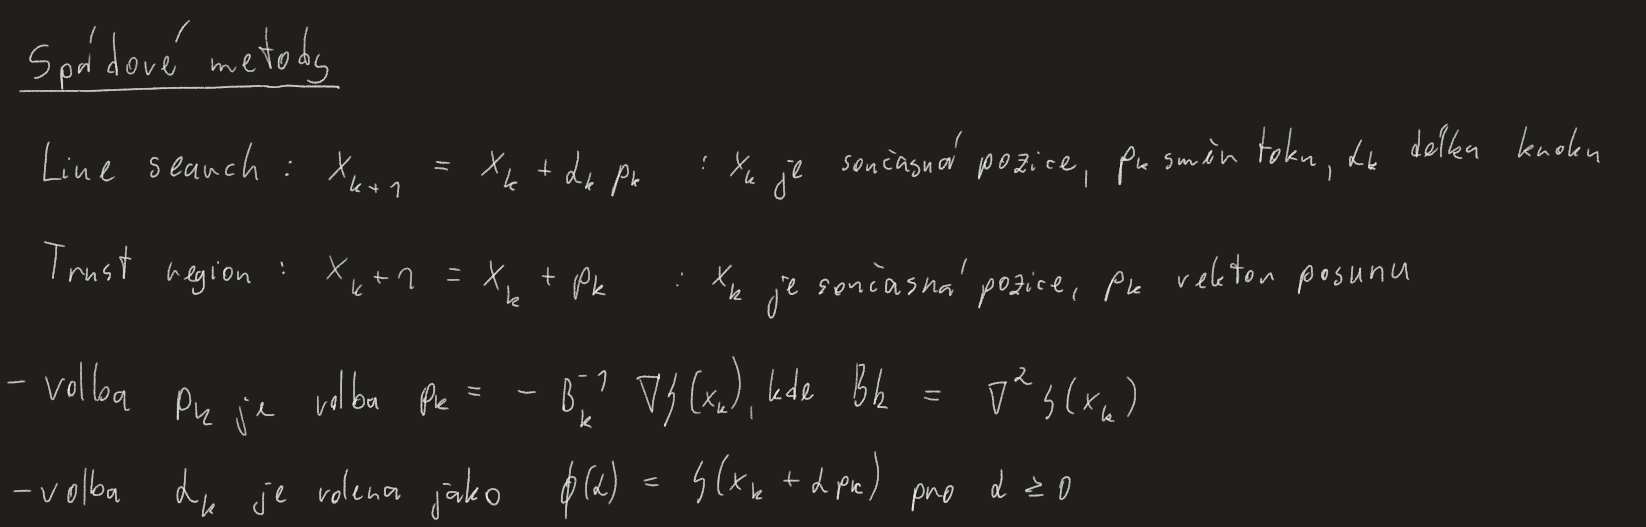 Spádové metody
Line search : x_{k+1} = x_k + α_k p_k : x_k je současná pozice, p_k směr toku, α_k délka kroku
Trust region : x_{k+1} = x_k + p_k : x_k je současná pozice, p_k vektor posunu
- volba p_k je volba p_k = - B_k^{-1} ∇f(x_k), kde B_k = ∇^2 f(x_k)
- volba α_k je volena jako φ(α) = f(x_k + α p_k) pro α ≥ 0